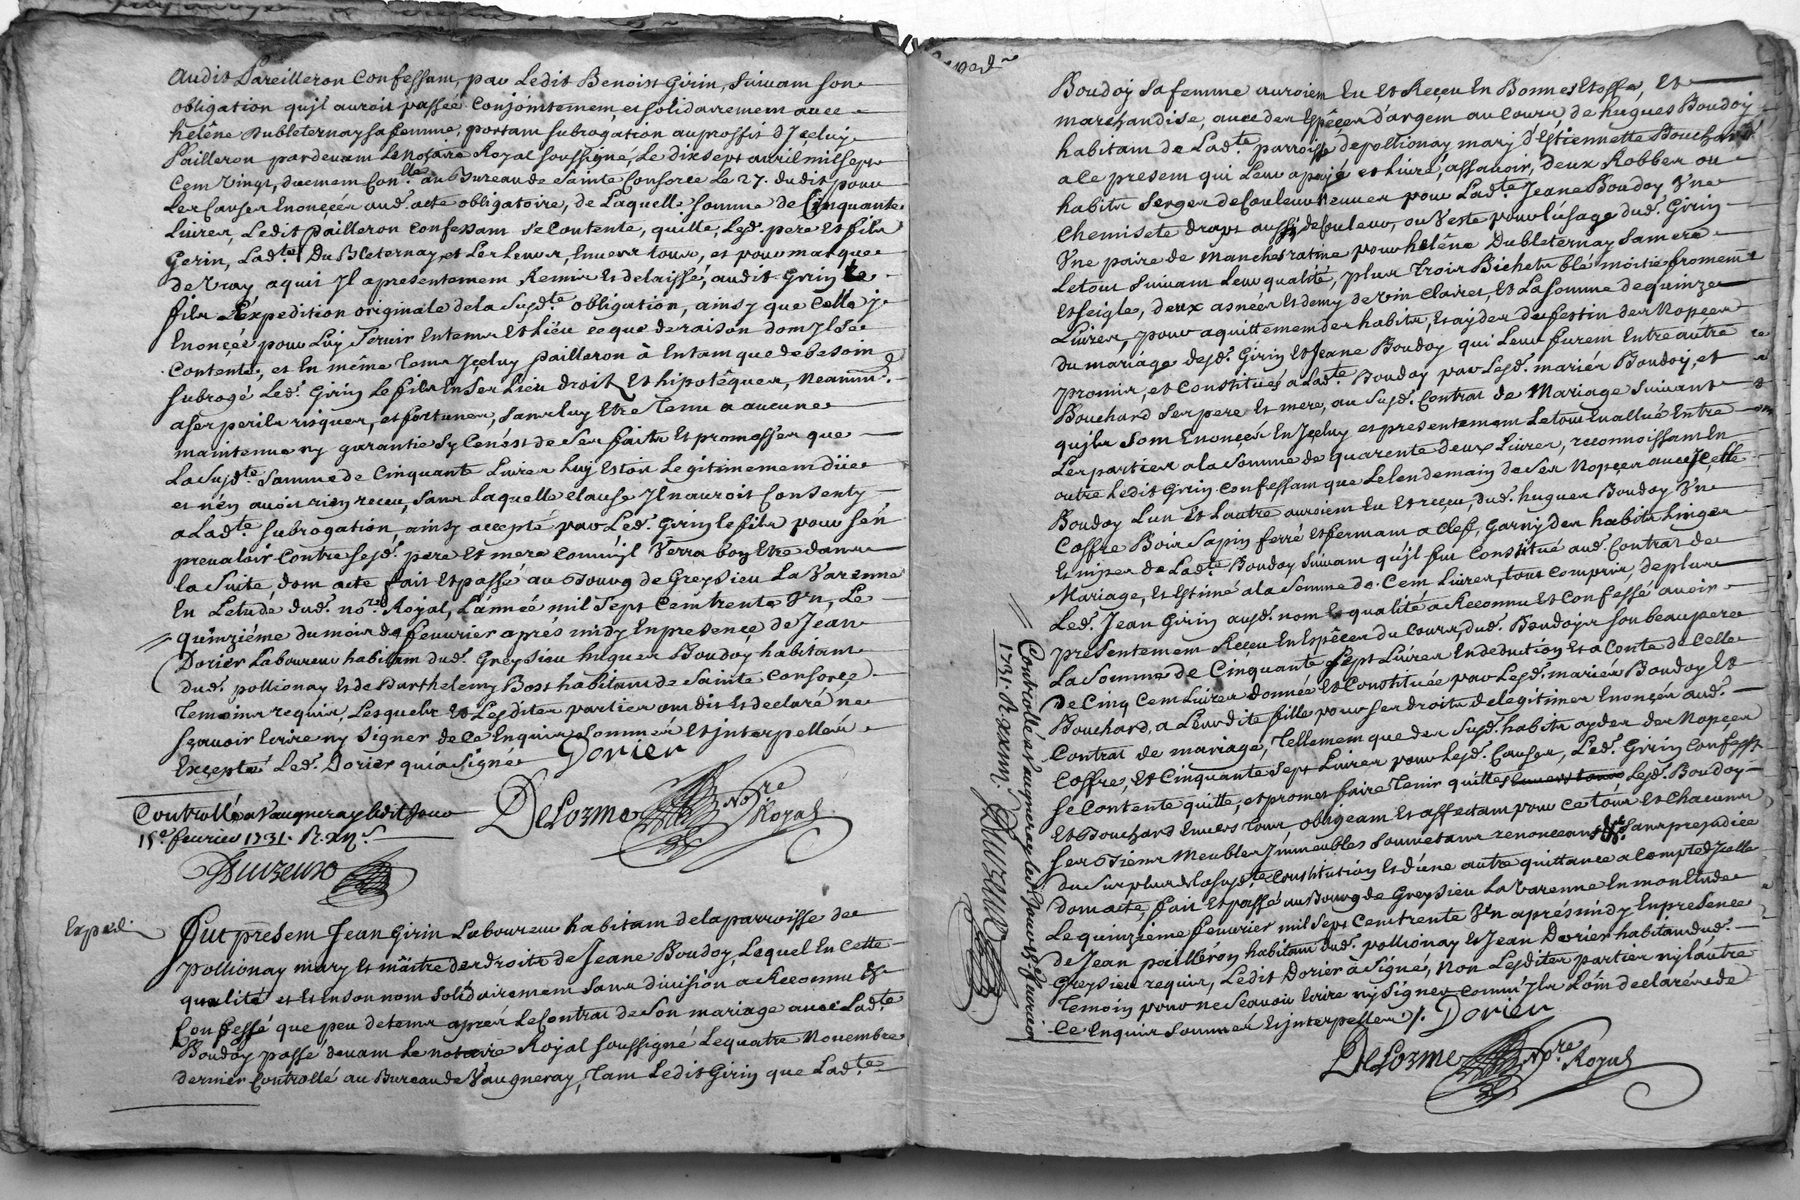 audit Pailleron confessant, par Ledit Benoist Girin, suivant son
obligation qu'jl auroit passée conjointement et solidairement avec
heléne Dubleternay sa femme, portant subrogation au proffit d'Jceluy
Pailleron pardevant Le Notaire Royal soussigné, Le dix sept avril mil sept
Cent Vingt, duement Con.lle au Bureau de Sainte Consorce Le 27. dudit pour
Les Causes Enoncées aud. acte obligatoire, de Laquelle somme de Cinquante
Livres, Ledit pailleron Confessant se Contente, quitte, Lesd. pere Et fils
Gerin, Lad.te Du Bleternay, et Les Leurs, Envers tous, et pour marque
de Vray aquit Jl a presentement Remis Et delaissé, audit Girin Le
fils L'Expedition originale de la Susd.te obligation, ainsy que Celle j
Enonçée pour Luy Servir En tems Et Liëu ce que de raison dont Jl Se
Contente, et En même Tems Jceluy pailleron à En tant que de besoin
subrogé Led. Girin Le fils En Ses Lieu droit Et hipotêques, Neanm.
a ses perils risques, et fortunes, sans luy Etre Tenu a aucune
maintenue ny garantie Sy Ce n'est de Ses faits Et promesses que
La Susd.te Somme de Cinquante Livres Luy Estoit Legitimement düe
et n'en avoir rien receu, sans Laquelle clause Jl n'auroit Consenty
a Lad.te Subrogation ainsy accepté par Led. Girin Le fils pour s'en
prevaloir Contre Sesd. pere Et mere Comm'jl Verra bon Etre dans
la Suite, dont acte fait Et passé au Bourg de Greysieu La Varenne
En L'etude dud. no.re Royal, L'année mil Sept Cent trente Un, Le
quinziéme du mois de fevvrier aprés midy En presence de Jean
Dorier Laboureur habitant dud. Greysieu hugues Boudoy habitant
dud. pollionay Et de Barthelemy Bost habitant de Sainte Consorce
Temoins requis, Lesquels Et Lesdites parties ont dit Et declaré ne
sçavoir Ecrire ny Signer de ce Enquis Sommés Et jnterpellés
Excepté Led. Dorier qui a Signé
Dorier
Delorme No.re Royal
Controllé a Vaugneray Ledit Jour
15.e fevrier 1731. R. xij s.
Exped.
Fut present Jean Girin Laboureur habitant de la parroisse de
Pollionay mary Et maitre des droits de Jeane Boudoy, Lequel En Cette
qualité et En son nom Solidairement sans division a Reconnu Et
Confessé que peu de tems aprés Le Contrat de Son mariage avec Lad.te
Boudoy passé devant Le notaire Royal soussigné Le quatre Novembre
dernier Controllé au Bureau de Vaugneray, Tant Ledit Girin que Lad.te
Boudoy sa femme auroient Eu Et Reçeu En Bonnes Etoffes, Et
marchandise, avec des Espêces d'argent au Cours de hugues Boudoy
habitant de Lad.te parroisse de pollionay mary d'Estiennette Bouchard
a Ce present qui Leur a payé et Livré, assavoir, deux Robbes ou
habits Serges de Couleur neuves pour Lad.te Jeane Boudoy Une
Chemisete draps aussi de Couleur, ou Veste pour L'usage dud. Girin
Une paire de manches ratine pour heléne Dubleternay Sa mere
Le tout suivant Leur qualité, plus Trois Bichets blé moitié froment
Et seigle, deux asnées Et demy de vin Clairet, Et La somme de quinze
Livres, pour aquittement des habits, Et ayder du festin des Nopces
du mariage desd. Girin Et Jeane Boudoy qui Leur furent Entre autre
promis, et Constitués a Lad.te Boudoy par Lesd. mariés Boudoy, et
Bouchard Ses pere Et mere, au Susd. Contrat de Mariage Suivant
qu'jls Sont Enonçés En Jceluy et presentement Le tout Evallué Entre
Les parties a la Somme de quarente deux Livres, reconnoissant En
outre Ledit Girin Confessant que Le Lendemain de Ses Nopces avec Jcelle
Boudoy L'un Et L'autre auroient Eu Et reçeu, dud. hugues Boudoy Un
Coffre Bois Sapin ferré Et fermant a Clef, Garny des habits Linges
Et nipes de Lad.te Boudoy Suivant qu'jl fut Constitué aud. Contrat de
Mariage, Et Estimé a la Somme de Cent Livres, tout Compris, de plus
Led. Jean Girin ausd. nom Et qualité a Reconnu Et Confessé avoir
presentement Reçeu En Espêces du Cours, dud. Boudoy Son beau pere
La Somme de Cinquante Sept Livres En deduction Et a Conte de Celle
De Cinq Cent Livres donnée Et Constituée par Lesd. mariés Boudoy Et
Bouchard, a Leurdite fille pour Ses droits de legitimes Enonçés aud.
Contrat de mariage, Tellement que des Susd. habits ayder des Nopces
Coffre, Et Cinquante Sept Livres pour Lesd. Causes, Led. Girin Confess.t
Se Contente quitte, et promet faire Tenir quittes Lesd. Boudoy
Et Bouchard Envers Tous obligeant Et affectant pour Ce Tous Et Chacuns
Ses Biens Meubles Jmmeubles Soumettans renonceans &c. Sans prejudice
du Surplus de la Susd.te Constitution Et d'une autre quittance a Compte d'Jcelle
dont acte, fait Et passé au Bourg de Greysieu La Varenne En mon Etude
Le quinziéme fevvrier mil Sept Cent trente Un aprés midy En presence
de Jean pailleron habitant dud. pollionay Et Jean Dorier habitant dud.
Greysieu requis, Ledit Dorier à Signé, Non Lesdites parties ny L'autre
Temoin pour ne Sçavoir Ecrire ny Signer Comm'jls L'ont declaré de
Ce Enquis Sommés Et jnterpellés ./. Dorier
Delorme No.re Royal
Controllé a Vaugneray Led. Jour 15 fevrier
1731. R. xxiiij s.